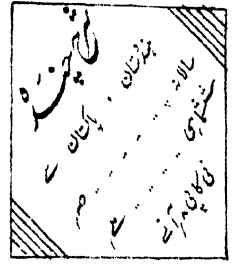 شرح چندہ
ہندوستان ، پاکستان
سالانہ
ششماہی
فی کاپی ۴ر آنے